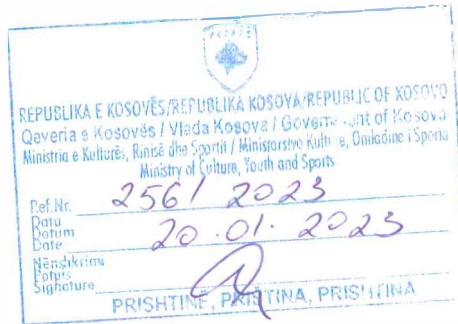 REPUBLIKA E KOSOVËS/REPUBLIKA KOSOVA/REPUBLIC OF KOSOVO
Qeveria e Kosovës / Vlada Kosova / Government of Kosova
Ministria e Kulturës, Rinisë dhe Sportit / Ministarstvo Kulture, Omladine i Sporta
Ministry of Culture, Youth and Sports
Ref.Nr. 256/ 2023
Data
Datum
Date 20.01.2023
Nënshkrimi
Potpis
Signature
PRISHTINË, PRIŠTINA, PRISHTINA